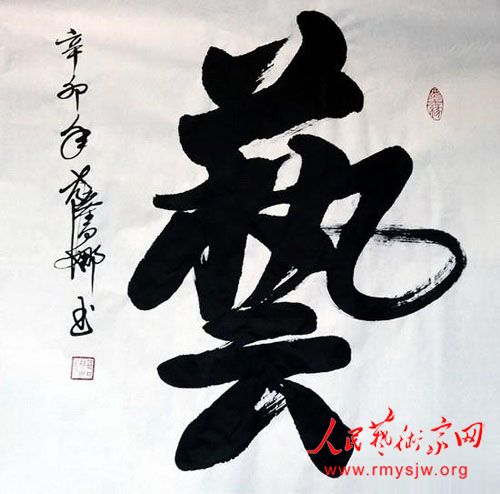 藝
辛卯年薩日娜书
人民藝術家网
www.rmysjw.org